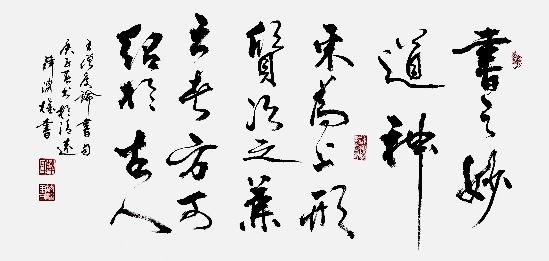 書之妙
道神
采為上形
質次之兼
之者方可
紹於古人
王僧虔論書句
庚子於清遠
書